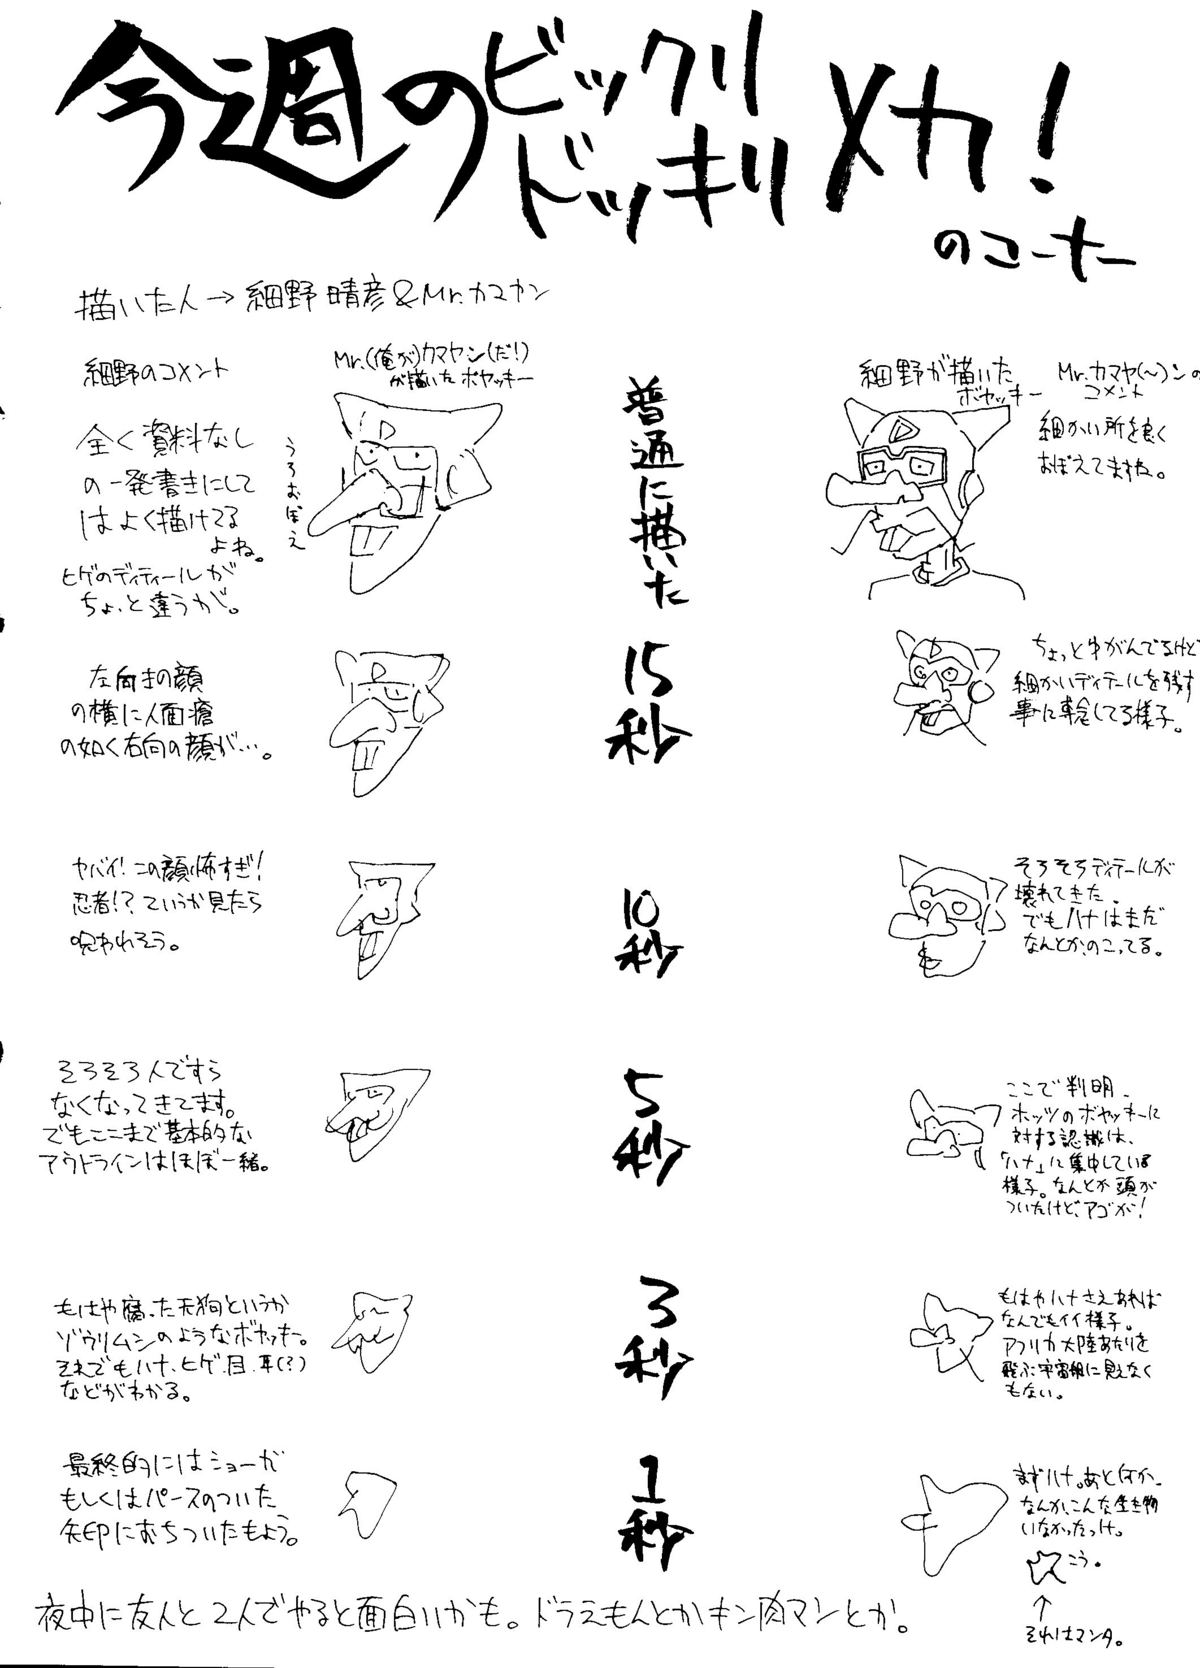 今週のビックリ
ドッキリメカ!
のコーナー
描いた人→細野晴彦&Mr.カマヤン
細野のコメント
Mr.(俺が)カマヤン(だ!)
が描いたボヤッキー
うろおぼえ
全く資料なし
の一発書きにして
はよく描けてる
よね。
ヒゲのディティールが
ちょっと違うが。
普通に描いた
細野が描いた
ボヤッキー
Mr.カマヤ(〜)ンの
コメント
細かい所を良く
おぼえてますね。
左向きの顔
の横に人面瘡
の如く右向の顔が…。
15秒
ちょっとゆがんでるけど
細かいディテールを残す
事に専念してる様子。
ヤバイ!この顔怖すぎ!
忍者!?ていうか見たら
呪われそう。
10秒
そろそろディテールが
壊れてきた。
でもハナはまだ
なんとか、のこってる。
そろそろ人ですら
なくなってきてます。
でもここまで基本的な
アウトラインはほぼ一緒。
5秒
ここで判明、
ホッツのボヤッキーに
対する認識は、
「ハナ」に集中している
様子。なんとか頭が
ついたけど、アゴが!
もはや腐った天狗というか
ゾウリムシのようなボヤッキー。
それでもハナ、ヒゲ、目、耳(?)
などがわかる。
3秒
もはやハナさえあれば
なんでもイイ様子。
アフリカ大陸あたりを
飛ぶ宇宙船に見えなく
もない。
最終的にはショーガ
もしくはパースのついた
矢印におちついたもよう。
1秒
まずハナ。あと何か、
なんか、こんな生き物
いなかったっけ。
こう。
↑
それはマンタ。
夜中に友人と2人でやると面白いかも。ドラえもんとかキン肉マンとか。